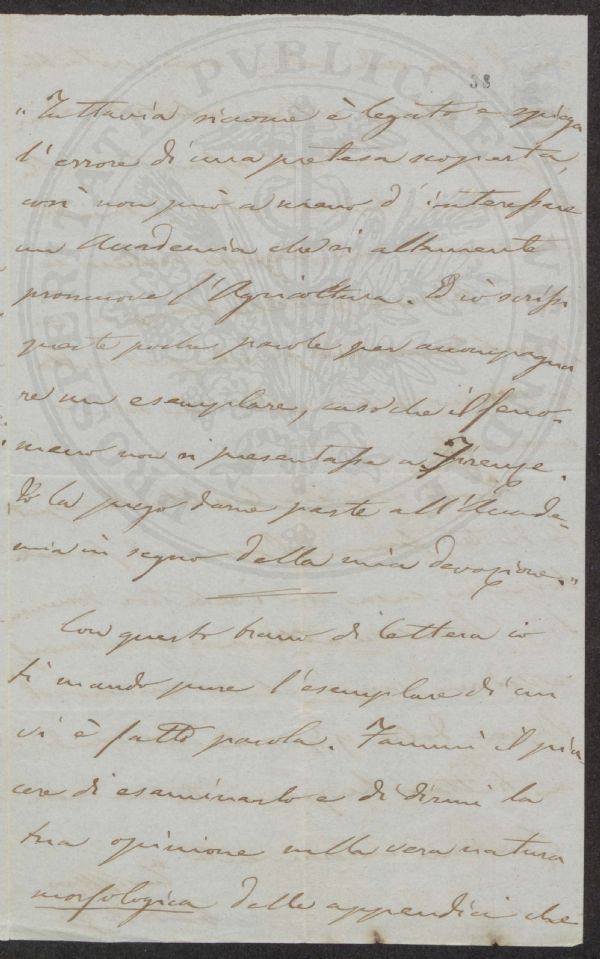 38
PROSPERITATI PVBLICAE AVGENDAE
„Tuttavia siccome è legato e spiega
l'errore di una pretesa scoperta,
così non può a meno d'interessare
un Accademia che sì altamente
promuove l'Agricoltura. Ed io scrissi
queste poche parole per accompagna
re un esemplare, casoche il feno-
meno non si presentasse a Firenze.
La prego darne parte all'Accade-
mia in segno della mia devozione."
Con questo brano di lettera io
ti mando pure l'esemplare di cui
vi è fatto parola. Fammi il pia-
cere di esaminarlo e di dirmi la
tua opinione nella vera natura
morfologica delle appendici che